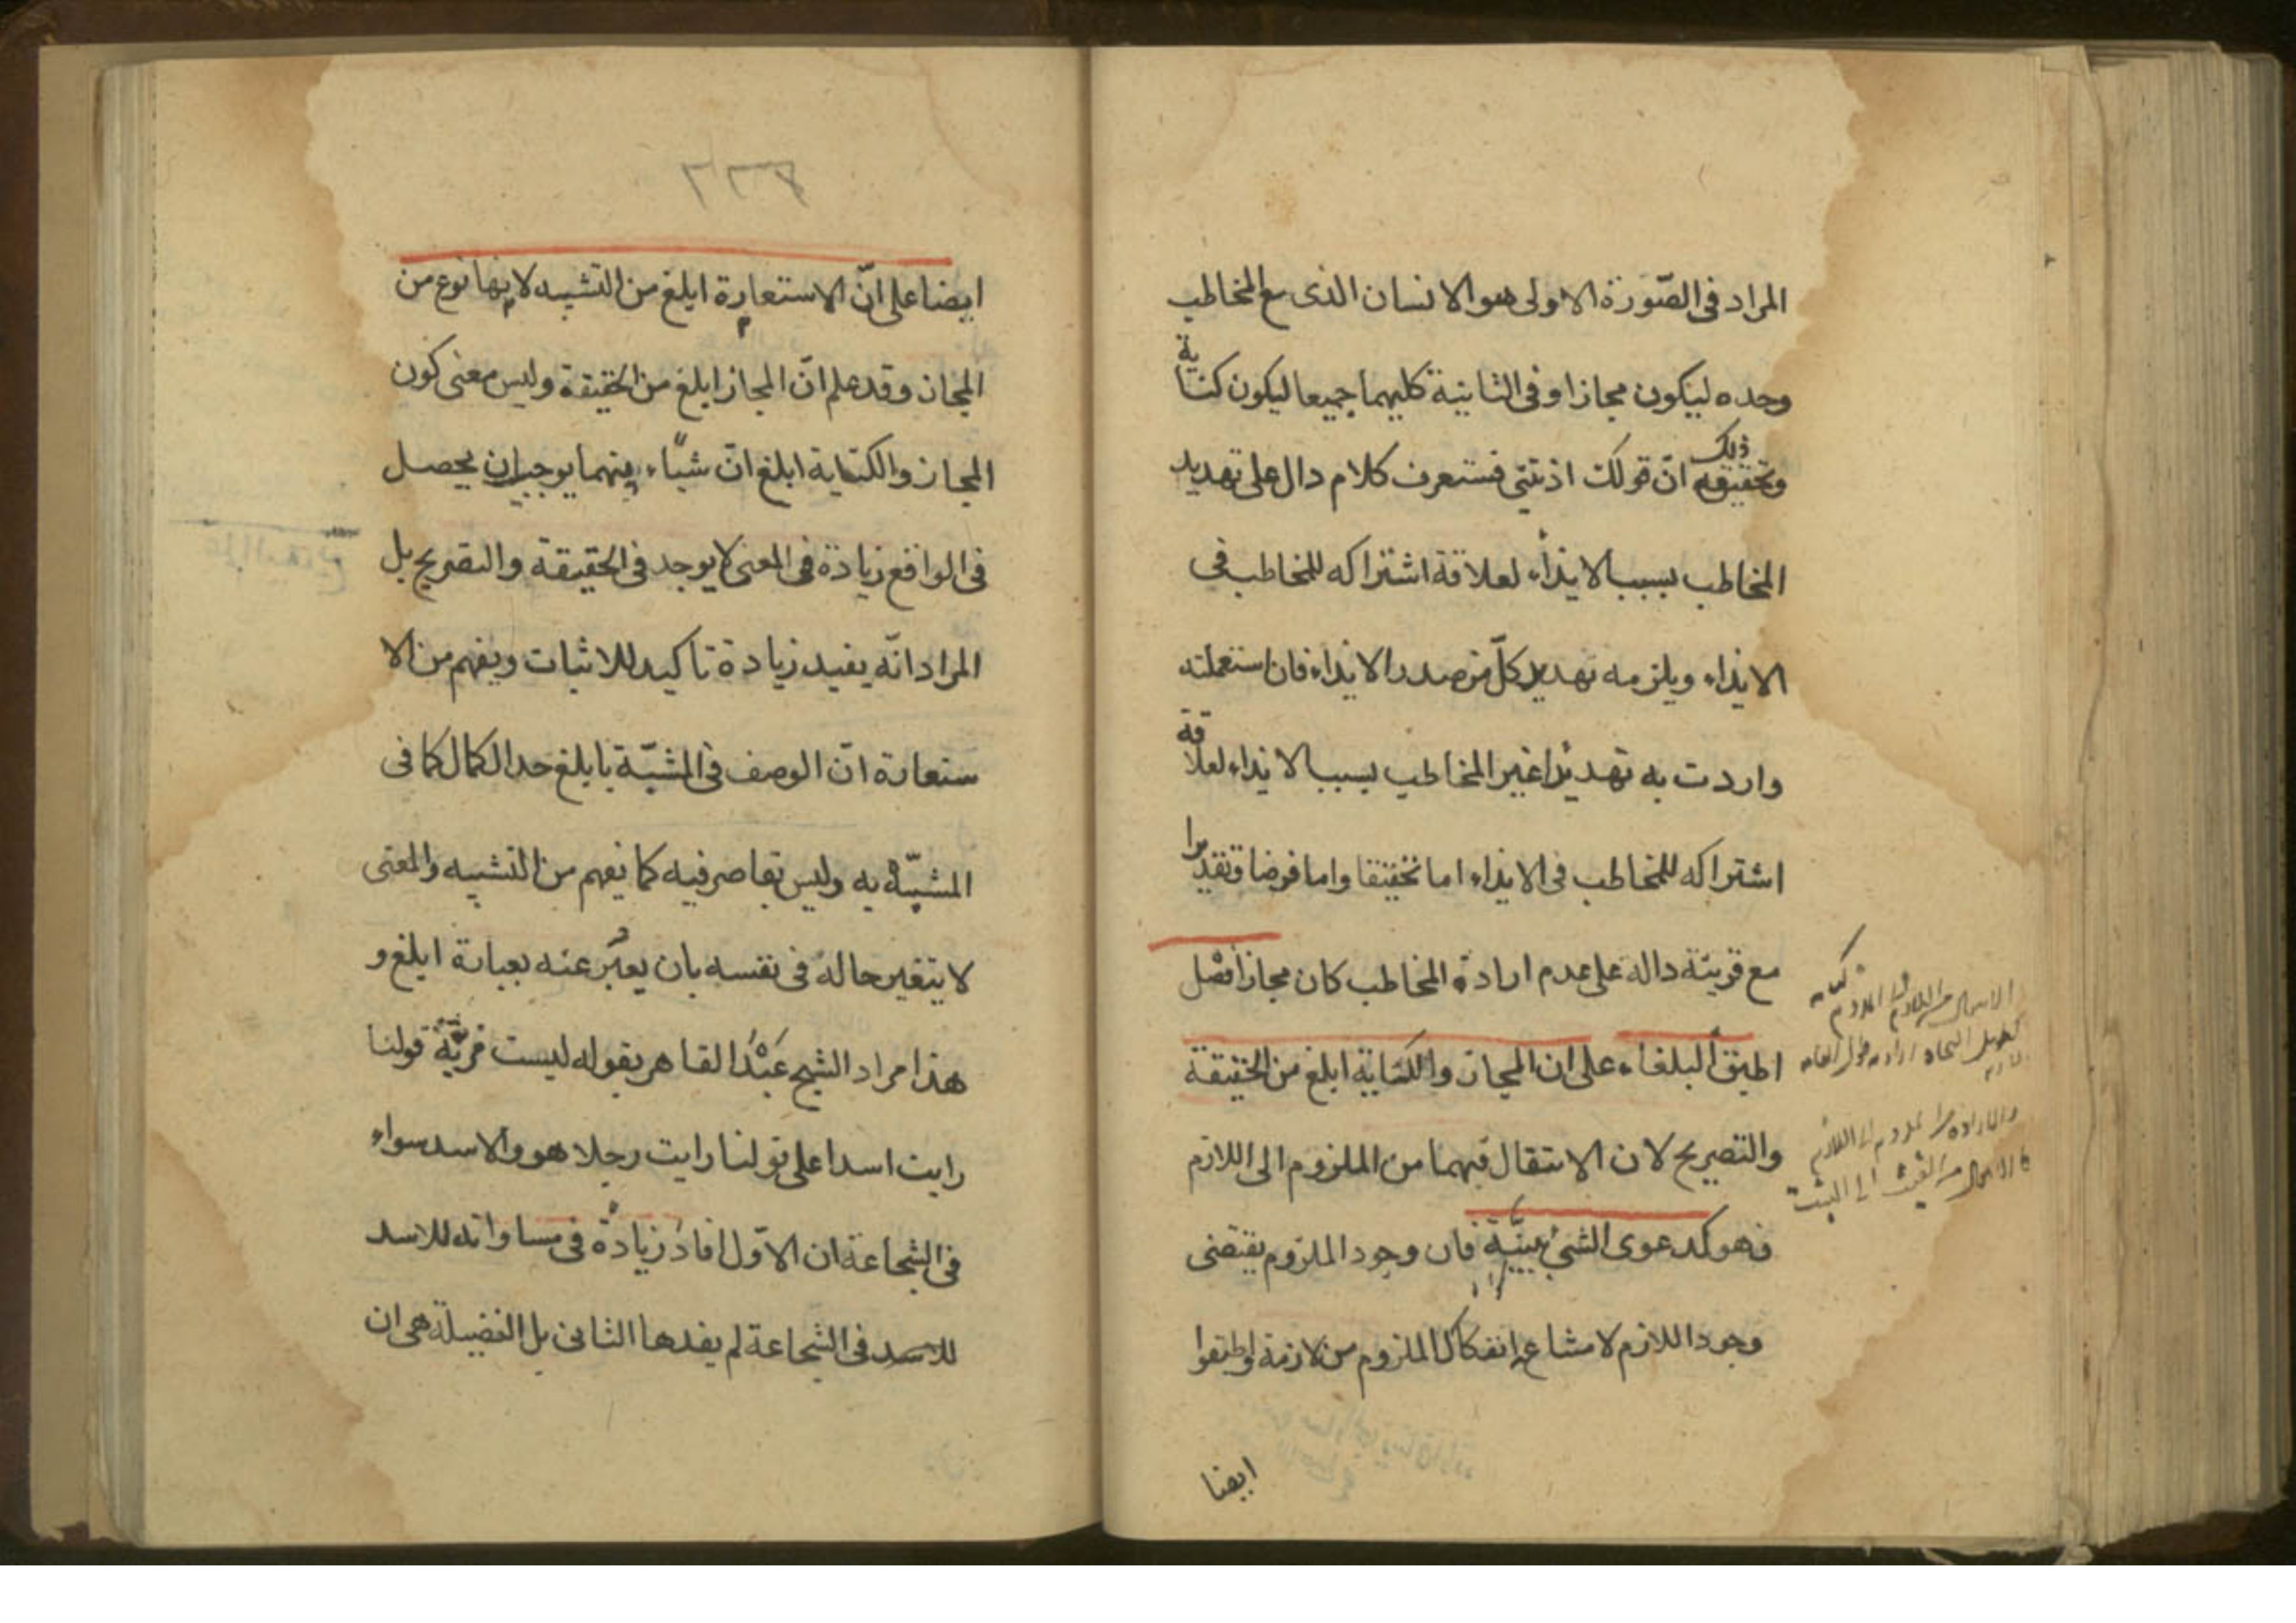 المراد فى الصّورة الاولى هو الانسان الذى مع المخاطب
وحده ليكون مجازا وفى الثانية كليهما جميعا ليكون كناية
وتحقيقه ذلك انّ قولك اذيتنى فستعرف كلام دال على تهديد
المخاطب بسبب الايذاء لعلاقة اشتراكه للمخاطب فى
الايذاء ويلزمه تهديد كلّ من صدر الايذاء فان استعملته
واردت به تهديدا غير المخاطب بسبب الايذاء لعلاقة
اشتراكه للمخاطب فى الايذاء اما تحقيقا واما فرضا وتقديرا
مع قرينة داله على عدم ارادة المخاطب كان مجازا فصل
اطبق البلغاء على ان المجاز والكناية ابلغ من الحقيقة
والتصريح لان الانتقال فيهما من الملزوم الى اللازم
فهو كدعوى الشئ ببيّنة فان وجود الملزوم يقتضى
وجود اللازم لامتناع انفكاك الملزوم من لازمه واطبقوا
ايضا
٢٢٣
ايضا على انّ الاستعارة ابلغ من التشبيه لانها نوع من
المجاز وقد علم انّ المجاز ابلغ من الحقيقة وليس معنى كون
المجاز والكناية ابلغ انّ شيئا منهما يوجب ان يحصل
فى الواقع زيادة فى المعنى لا يوجد فى الحقيقة والتصريح بل
المراد انّه يفيد زيادة تاكيد للاثبات ويفهم من الا
ستعارة انّ الوصف فى المشبّه بابلغ حد الكمال كما فى
المشبّه به وليس بقاصر فيه كما يفهم من التشبيه والمعنى
لا يتغير حاله فى نفسه بان يعبّر عنه بعبارة ابلغ و
هذا مراد الشيخ عبد القاهر بقوله ليست مزيّة قولنا
رايت اسدا على قولنا رايت رجلا هو والاسد سواء
فى الشجاعة ان الاوّل افاد زيادة فى مساواته للاسد
للاسد فى الشجاعة لم يفدها الثانى بل الفضيلة هى ان